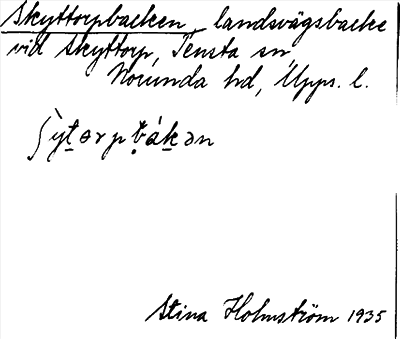 Skyttorpbacken, landsvägsbacke
vid Skyttorp, Tensta sn,
Norunda hd, Upps. l.
ʃyt̲ɵrpb̥ák̲ən
Stina Holmström 1935